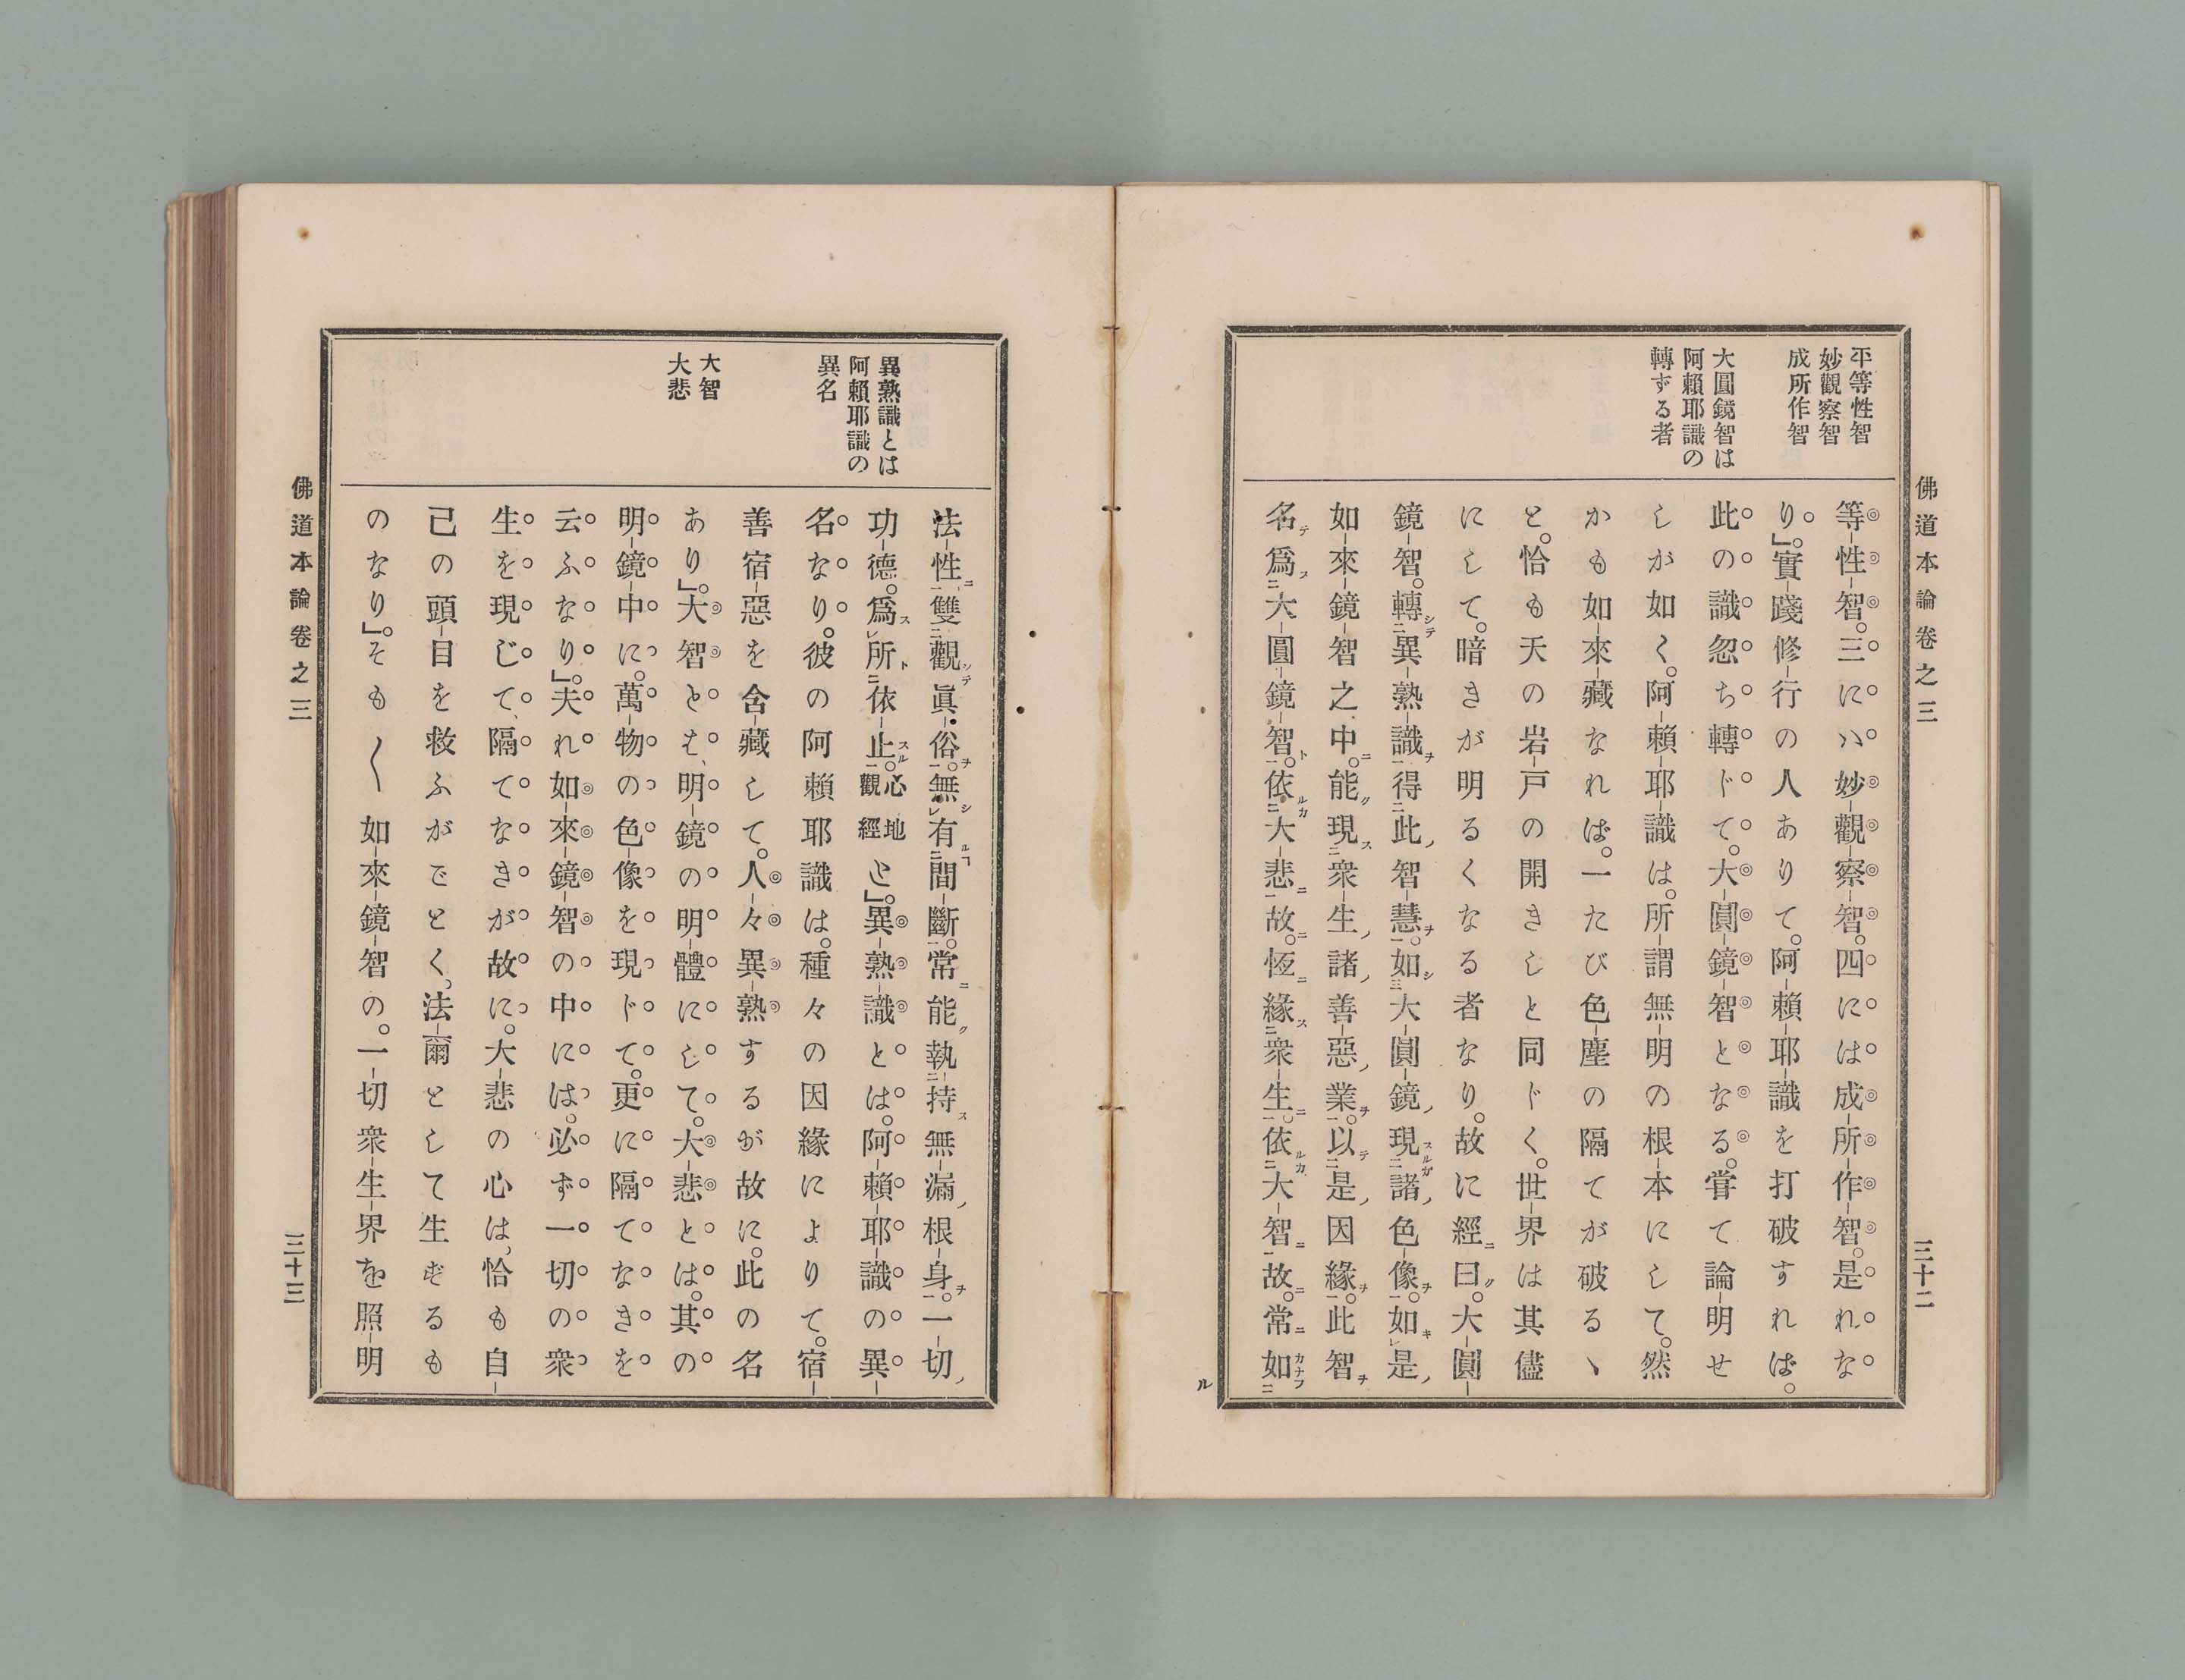 佛道本論卷之三
三十二
平等性智
妙觀察智
成所作智
大圓鏡智は
阿賴耶識の
轉ずる者
等性智。三にハ妙觀察智。四には成所作智。是れな
り」。實踐修行の人ありて。阿賴耶識を打破すれば。
此の識忽ち轉じて。大圓鏡智となる。甞て論明せ
しが如く。阿賴耶識は。所謂無明の根本にして。然
かも如來藏なれば。一たび色塵の隔てが破るヽ
と。恰も天の岩戸の開きしと同じく。世界は其儘
にして。暗きが明るくなる者なり。故に經ニ曰ク。大圓
鏡智。轉シテ二異熟識ヲ一得二此ノ智慧ヲ一。如シ三大圓鏡ノ現スルガ二諸ノ色像ヲ一。如キレ是ノ
如來鏡智之中ニ。能ク現ス二衆生ノ諸ノ善惡ノ業ヲ一。以テ二是ノ因緣ヲ一。此智ヲ
名テ爲ス二大圓鏡智ト一。依ルカ二大悲ニ一故ニ。恆ニ緣ス二衆生ニ一。依ルカ二大智ニ一故ニ。常ニ如カナフ二
ル
異熟識とは
阿賴耶識の
異名
大智
大悲
法性ニ一雙二觀シテ眞俗ヲ一。無シレ有ルヿ二間斷一。常ニ能ク執二持ス無漏ノ根身ヲ一。一切ノ
功德。爲スレ所ト二依止スル一。心地觀經と」。異熟識とは。阿賴耶識の異
名なり。彼の阿賴耶識は。種々の因緣によりて。宿
善宿惡を含藏して。人々異熟するが故に。此の名
あり」。大智とは、明鏡の明體にして。大悲とは。其の
明鏡中に。萬物の色像を現じて。更に隔てなきを
云ふなり」。夫れ如來鏡智の中には。必ず一切の衆
生を現じて、隔てなきが故に。大悲の心は、恰も自
己の頭目を救ふがごとく。法爾として生ずるも
のなり」。そも〱如來鏡智の。一切衆生界を照明
佛道本論卷之三
三十三